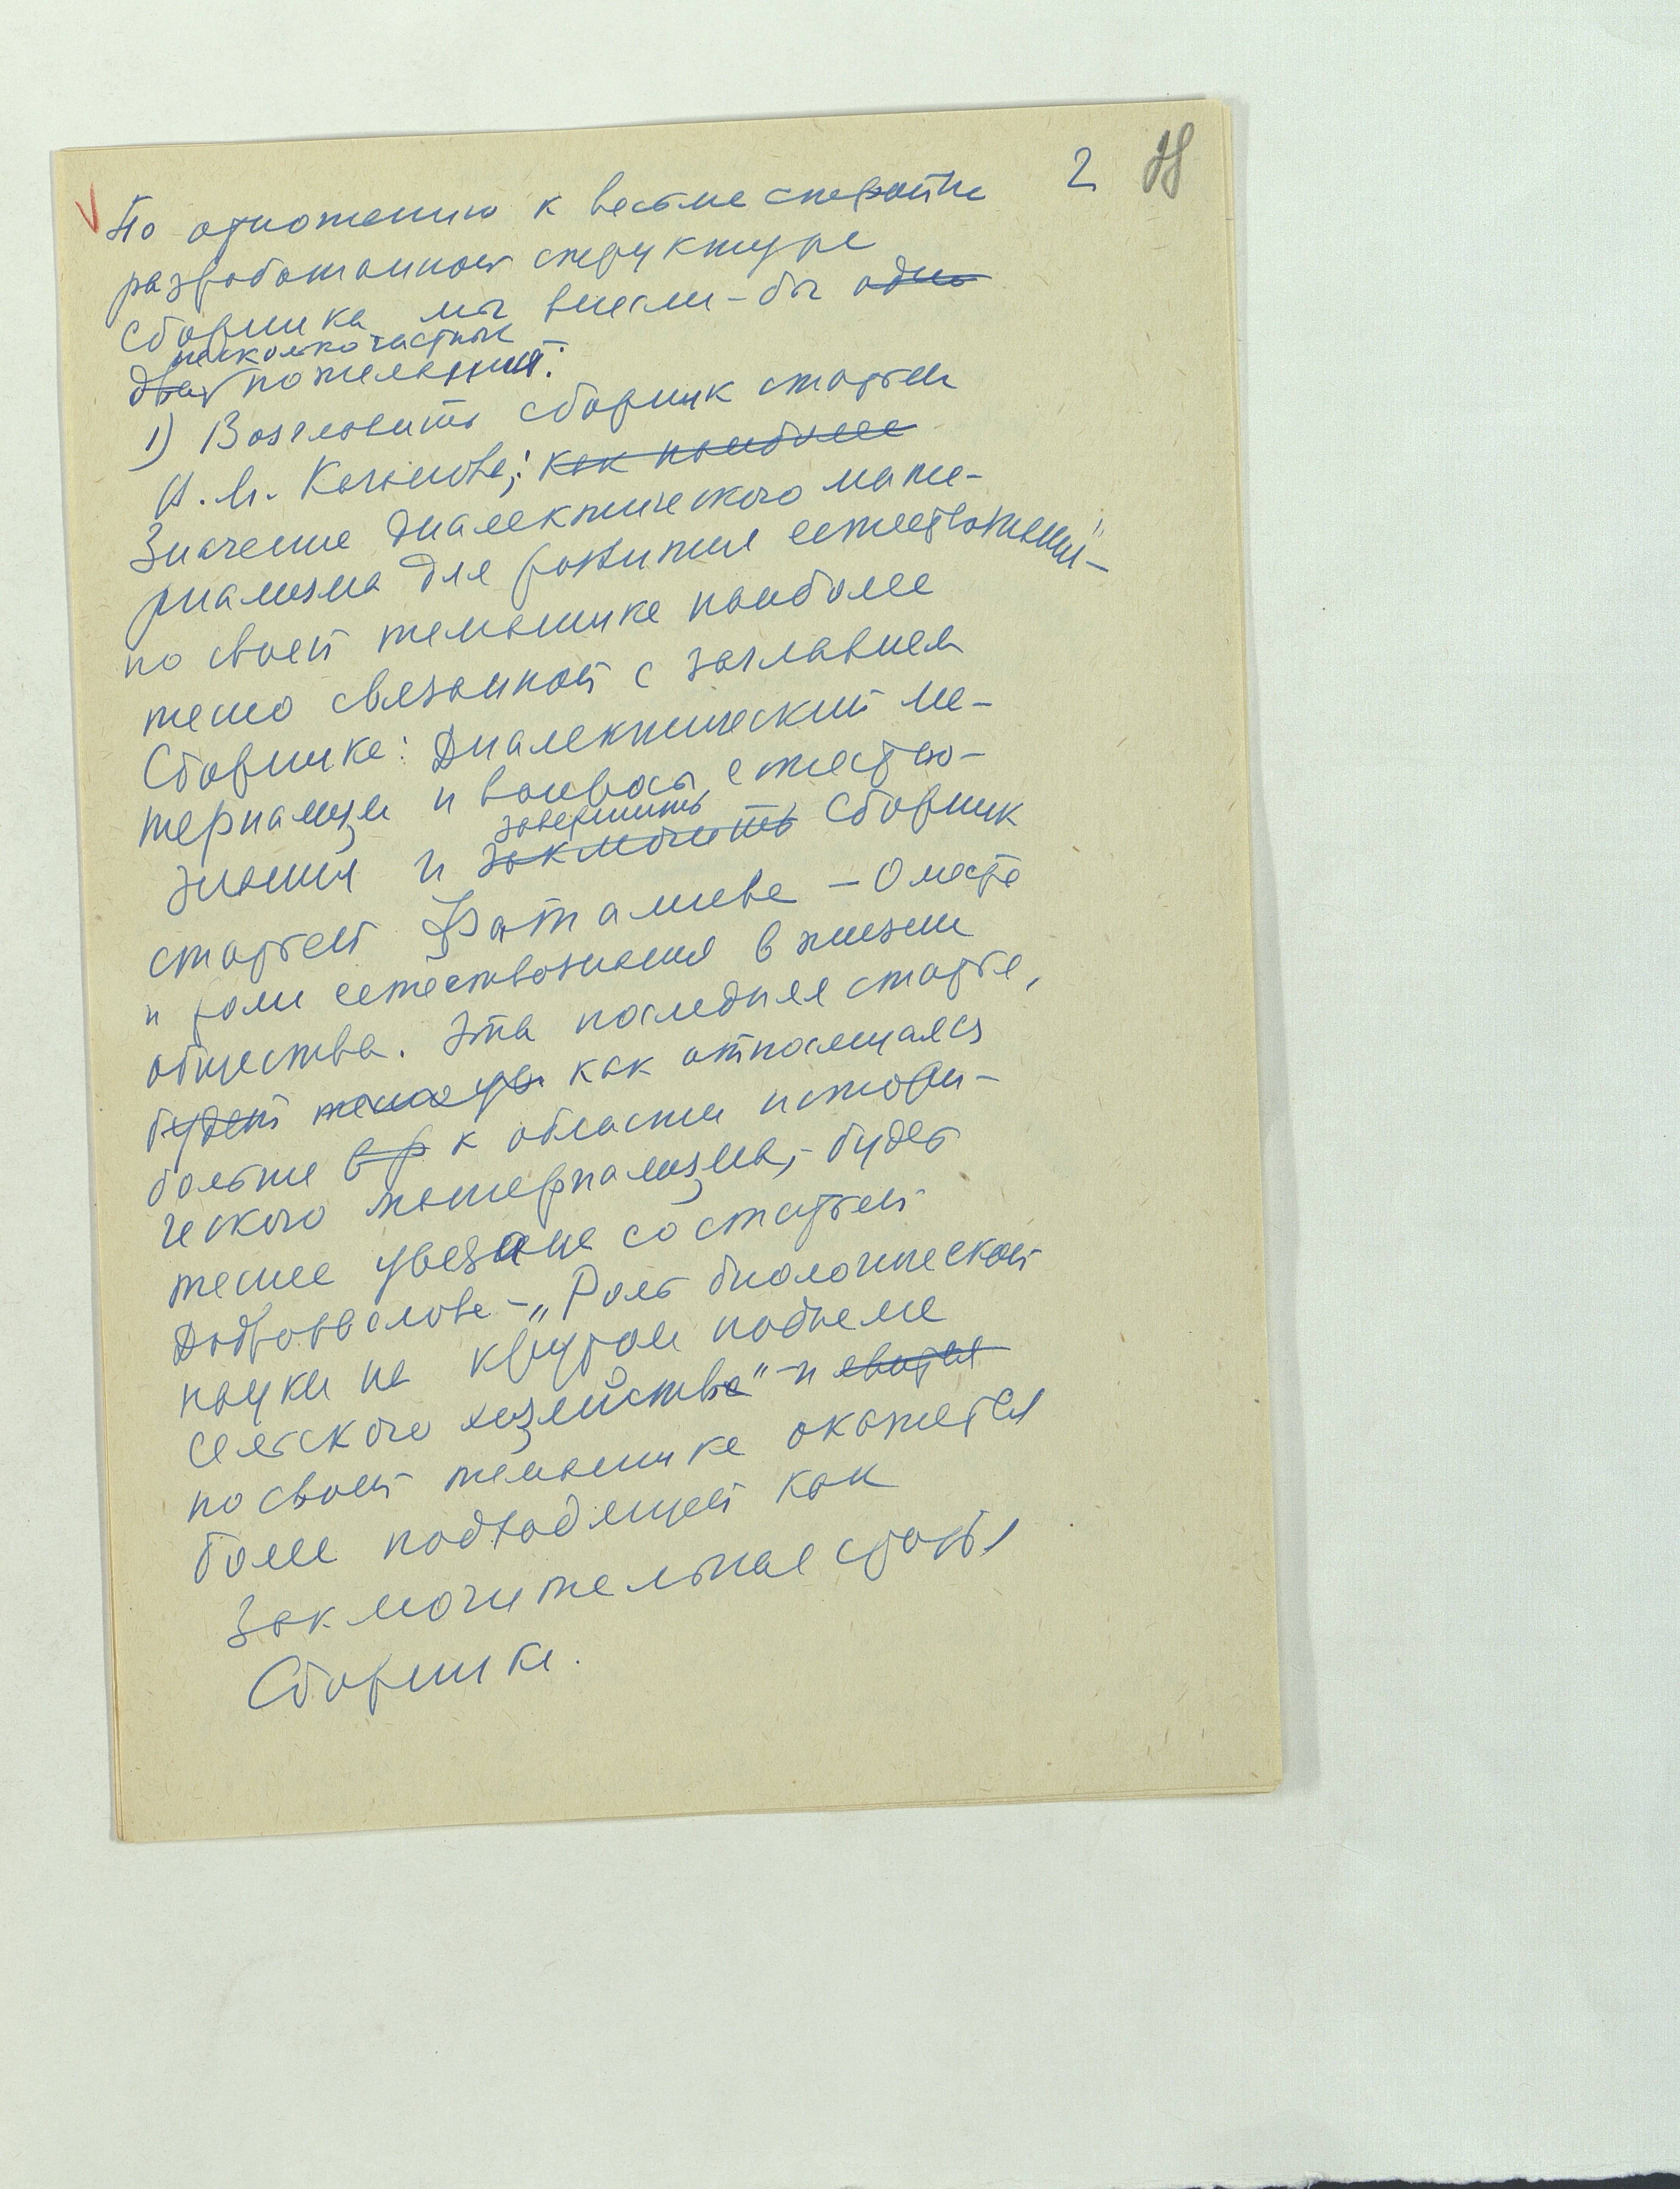 2 28
По отношению к весьма стройно
разработанной структуре
сборника мы внесли-бы одно
несколько частных
два пожеланий:
1) Возглавить сборник статьей
Значение диалектического мате-
риализма для развития естествознания"-
по своей тематике наиболее
тесно связанной с заглавием
Сборника: Диалектический ма-
териализм и вопросы естество-
завершить
знания и заключить Сборник
статьей Фаталиева - О месте
и роли естествознания в жизни
общества. Эта последняя статья,
будет как относящаяся
больше к области истори-
ческого материализма,- будет
теснее увязана со статьей
Добровслова - „Роль биологической
науки на крутом подъеме
сельского хозяйства" - и явится
по своей тематике окажется
более подходящей как
Заключительная статья
Сборника.